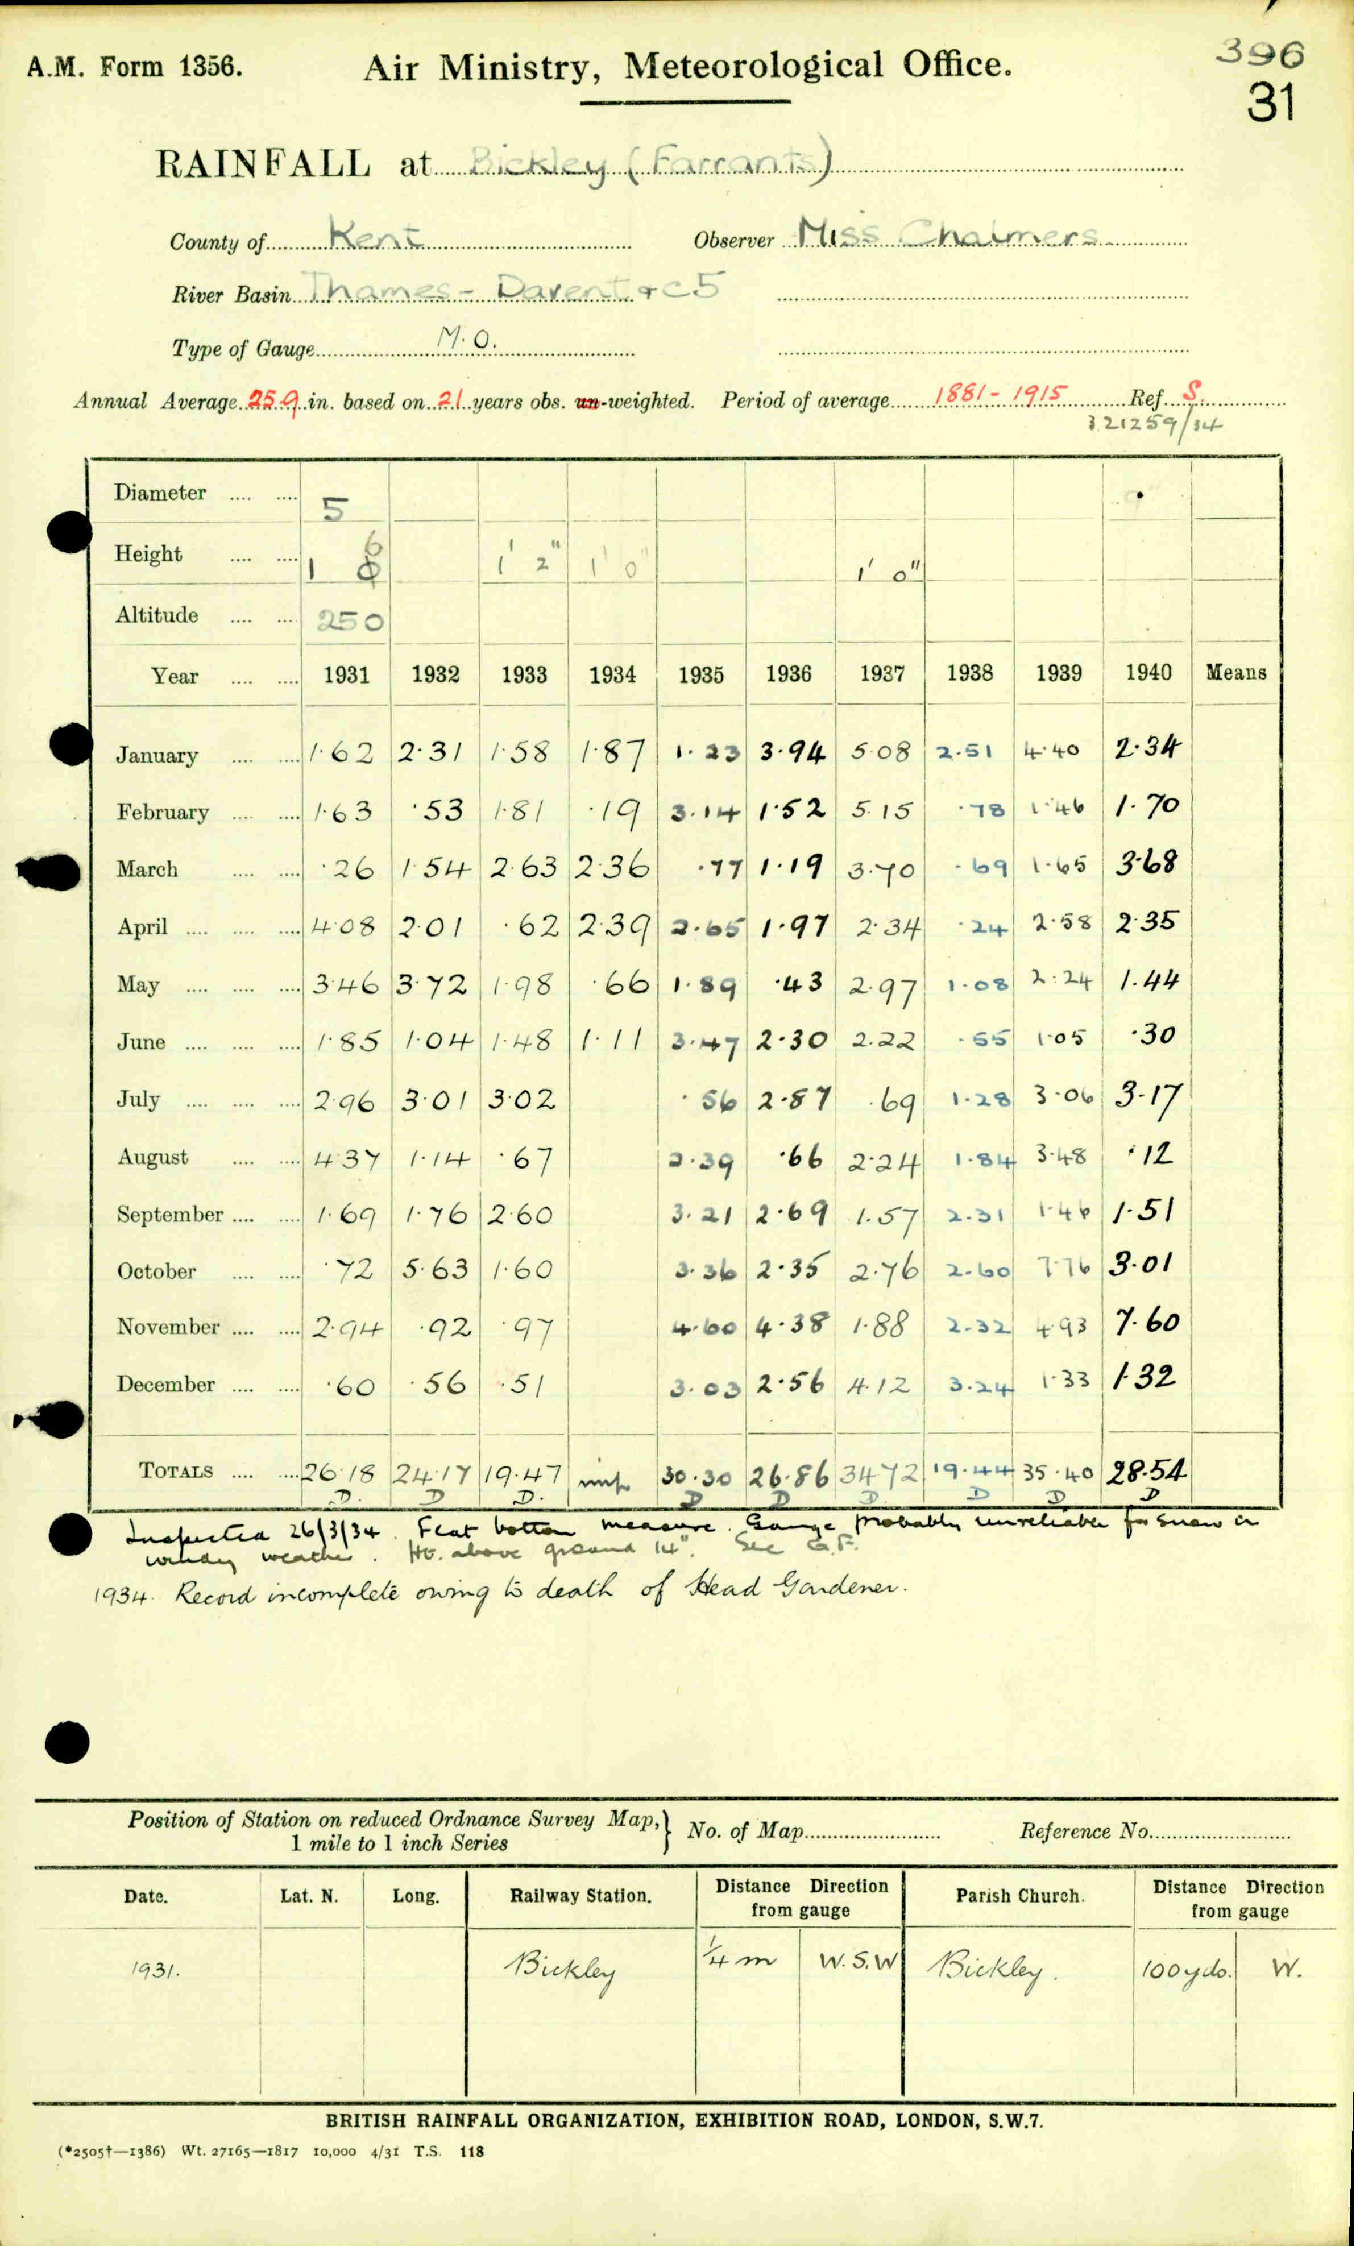 A.M. Form 1356.
Air Ministry, Meteorological Office.
396
31
RAINFALL at Bickley (Farrants)
County of Kent Observer Miss Chalmers
River Basin Thames - Darent &c 5
Type of Gauge M.O.
Annual Average 25.9 in. based on 21 years obs. un-weighted. Period of average 1881 - 1915 Ref. S.
321259/34
Diameter 5
Height 1 6 1' 2" 1' 0" 1' 0"
Altitude 250
Year 1931 1932 1933 1934 1935 1936 1937 1938 1939 1940 Means
January 1.62 2.31 1.58 1.87 1.23 3.94 5.08 2.51 4.40 2.34
February 1.63 .53 1.81 .19 3.14 1.52 5.15 .78 1.46 1.70
March .26 1.54 2.63 2.36 .77 1.19 3.70 .69 1.65 3.68
April 4.08 2.01 .62 2.39 2.65 1.97 2.34 .24 2.58 2.35
May 3.46 3.72 1.98 .66 1.89 .43 2.97 1.08 2.24 1.44
June 1.85 1.04 1.48 1.11 3.47 2.30 2.22 .55 1.05 .30
July 2.96 3.01 3.02 .56 2.87 .69 1.28 3.06 3.17
August 4.37 1.14 .67 2.39 .66 2.24 1.84 3.48 .12
September 1.69 1.76 2.60 3.21 2.69 1.57 2.31 1.46 1.51
October .72 5.63 1.60 3.36 2.35 2.76 2.60 7.76 3.01
November 2.94 .92 .97 4.60 4.38 1.88 2.32 4.93 7.60
December .60 .56 .51 3.03 2.56 4.12 3.24 1.33 1.32
TOTALS 26.18 24.17 19.47 imp 30.30 26.86 34.72 19.44 35.40 28.54
D. D D. D D D. D D D
Inspected 26/3/34. Flat bottom measure. Gauge probably unreliable for snow or
windy weather. Ht. above ground 14". See G.F.
1934. Record incomplete owing to death of Head Gardener.
Position of Station on reduced Ordnance Survey Map,} No. of Map Reference No.
1 mile to 1 inch Series
Date. Lat. N. Long. Railway Station. Distance Direction from gauge Parish Church. Distance Direction from gauge
1931. Bickley 1/4 m W.S.W Bickley. 100 yds. W.
BRITISH RAINFALL ORGANIZATION, EXHIBITION ROAD, LONDON, S.W.7.
(*2505†—1386) Wt. 27165—1817 10,000 4/31 T.S. 118